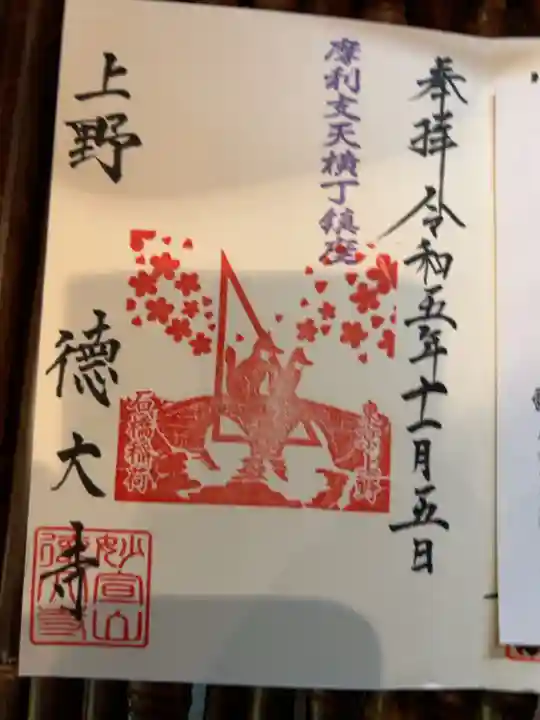 奉拝 令和五年十一月五日
摩利支天横丁鎮座
石橋稲荷
上野 徳大寺
妙宣山
徳大寺